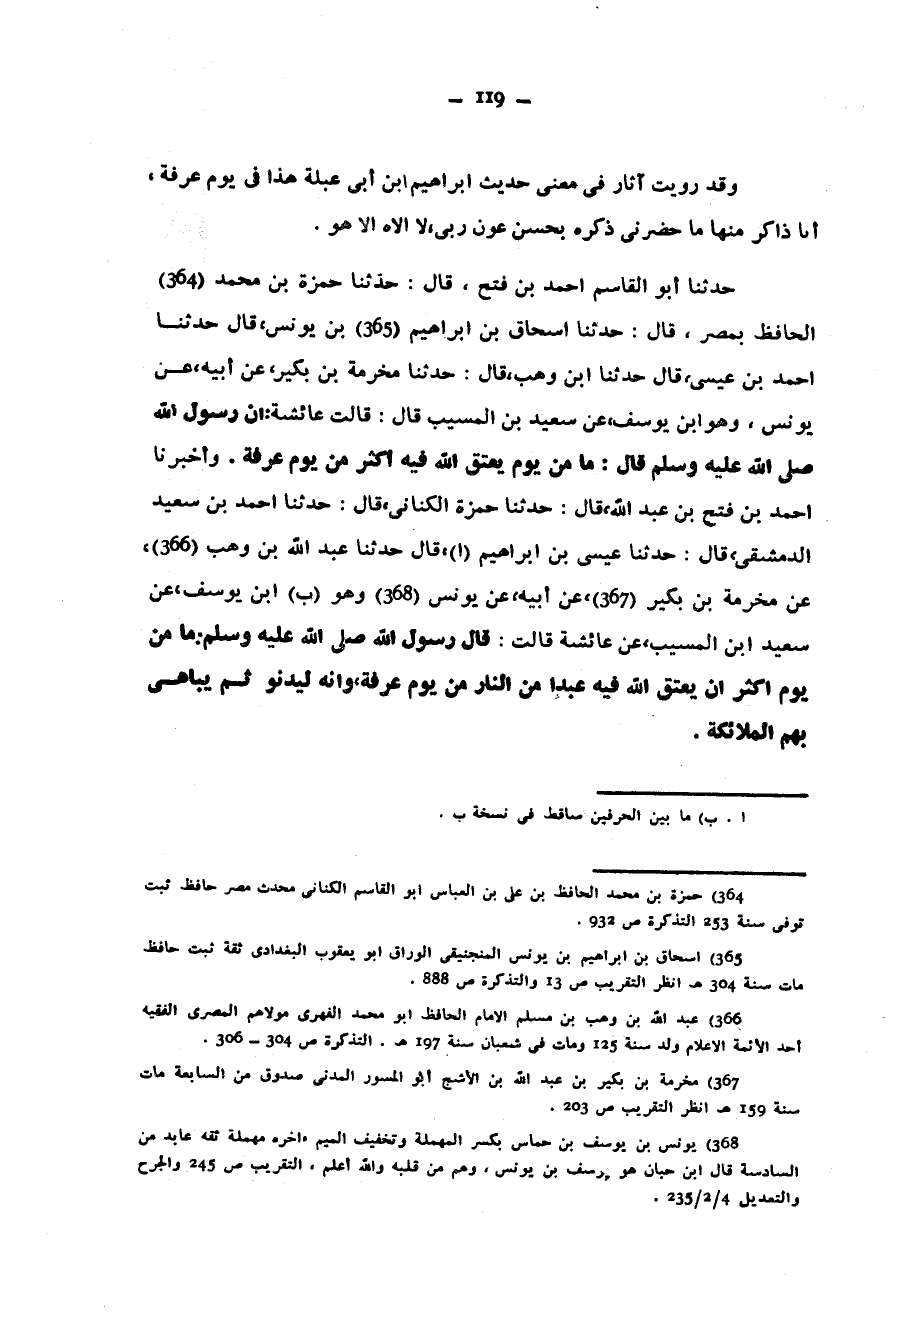 — 119 —
وقد رويت آثار في معنى حديث ابراهيم ابن أبي عبلة هذا في يوم عرفة ،
أنا ذاكر منها ما حضرني ذكره بحسن عون ربي،لا الاه الا هو .
حدثنا أبو القاسم احمد بن فتح ، قال : حدثنا حمزة بن محمد (364)
الحافظ بمصر ، قال : حدثنا اسحاق بن ابراهيم (365) بن يونس،قال حدثنــا
احمد بن عيسى،قال حدثنا ابن وهب،قال : حدثنا مخرمة بن بكير،عن أبيه،عــن
يونس ، وهو ابن يوسف،عن سعيد بن المسيب قال : قالت عائشة:ان رسول الله
صلى الله عليه وسلم قال : ما من يوم يعتق الله فيه أكثر من يوم عرفة . وأخبرنا
احمد بن فتح بن عبد الله،قال : حدثنا حمزة الكناني،قال : حدثنا احمد بن سعيد
الدمشقي،قال : حدثنا عيسى بن ابراهيم (ا)،قال حدثنا عبد الله بن وهب (366)،
عن مخرمة بن بكير (367)،عن أبيه،عن يونس (368) وهو (ب) ابن يوسف،عن
سعيد ابن المسيب،عن عائشة قالت : قال رسول الله صلى الله عليه وسلم:ما من
يوم اكثر ان يعتق الله فيه عبدا من النار من يوم عرفة،وانه ليدنو ثــم يباهــي
بهم الملائكة .
ا . ب) ما بين الحرفين ساقط في نسخة ب .
364) حمزة بن محمد الحافظ بن علي بن العباس ابو القاسم الكناني محدث مصر حافظ ثبت
توفي سنة 253 التذكرة ص 932 .
365) اسحاق بن ابراهيم بن يونس المنجنيقي الوراق ابو يعقوب البغدادي ثقة ثبت حافظ
مات سنة 304 هـ انظر التقريب ص 13 والتذكرة ص 888 .
366) عبد الله بن وهب بن مسلم الامام الحافظ ابو محمد الفهري مولاهم المصري الفقيه
أحد الأئمة الاعلام ولد سنة 125 ومات في شعبان سنة 197 هـ . التذكرة ص 304 — 306 .
367) مخرمة بن بكير بن عبد الله بن الأشج أبو المسور المدني صدوق من السابعة مات
سنة 159 هـ انظر التقريب ص 203 .
368) يونس بن يوسف بن حماس بكسر المهملة وتخفيف الميم ءاخره مهملة ثقه عابد من
السادسة قال ابن حبان هو يوسف بن يونس ، وهم من قلبه والله أعلم ، التقريب ص 245 والجرح
والتعديل 235/2/4 .